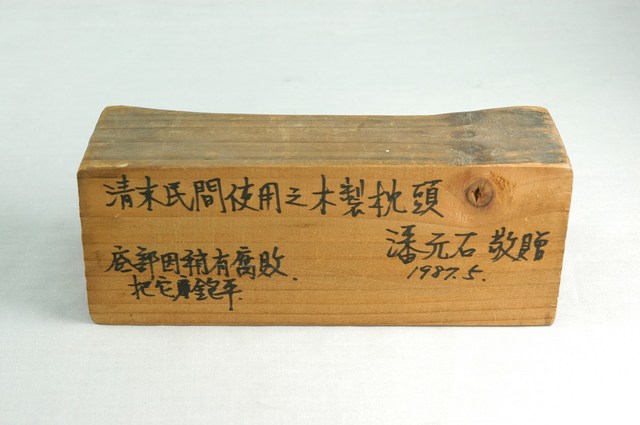 清末民間使用之木製枕頭
潘元石 敬贈
1987.5.
底部因稍有腐敗.
把它鉋平.